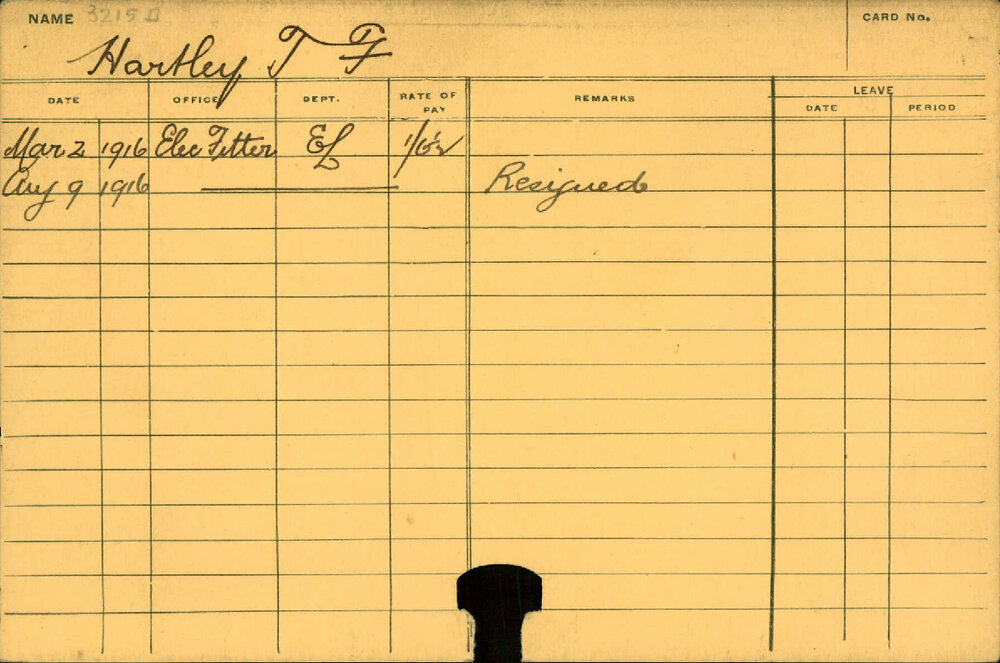 NAME 3215
CARD No.
Hartley T F
DATE OFFICE DEPT. RATE OF PAY REMARKS LEAVE
DATE PERIOD
Mar 2 1916 Elec Fitter EL
Aug 9 1916 Resigned